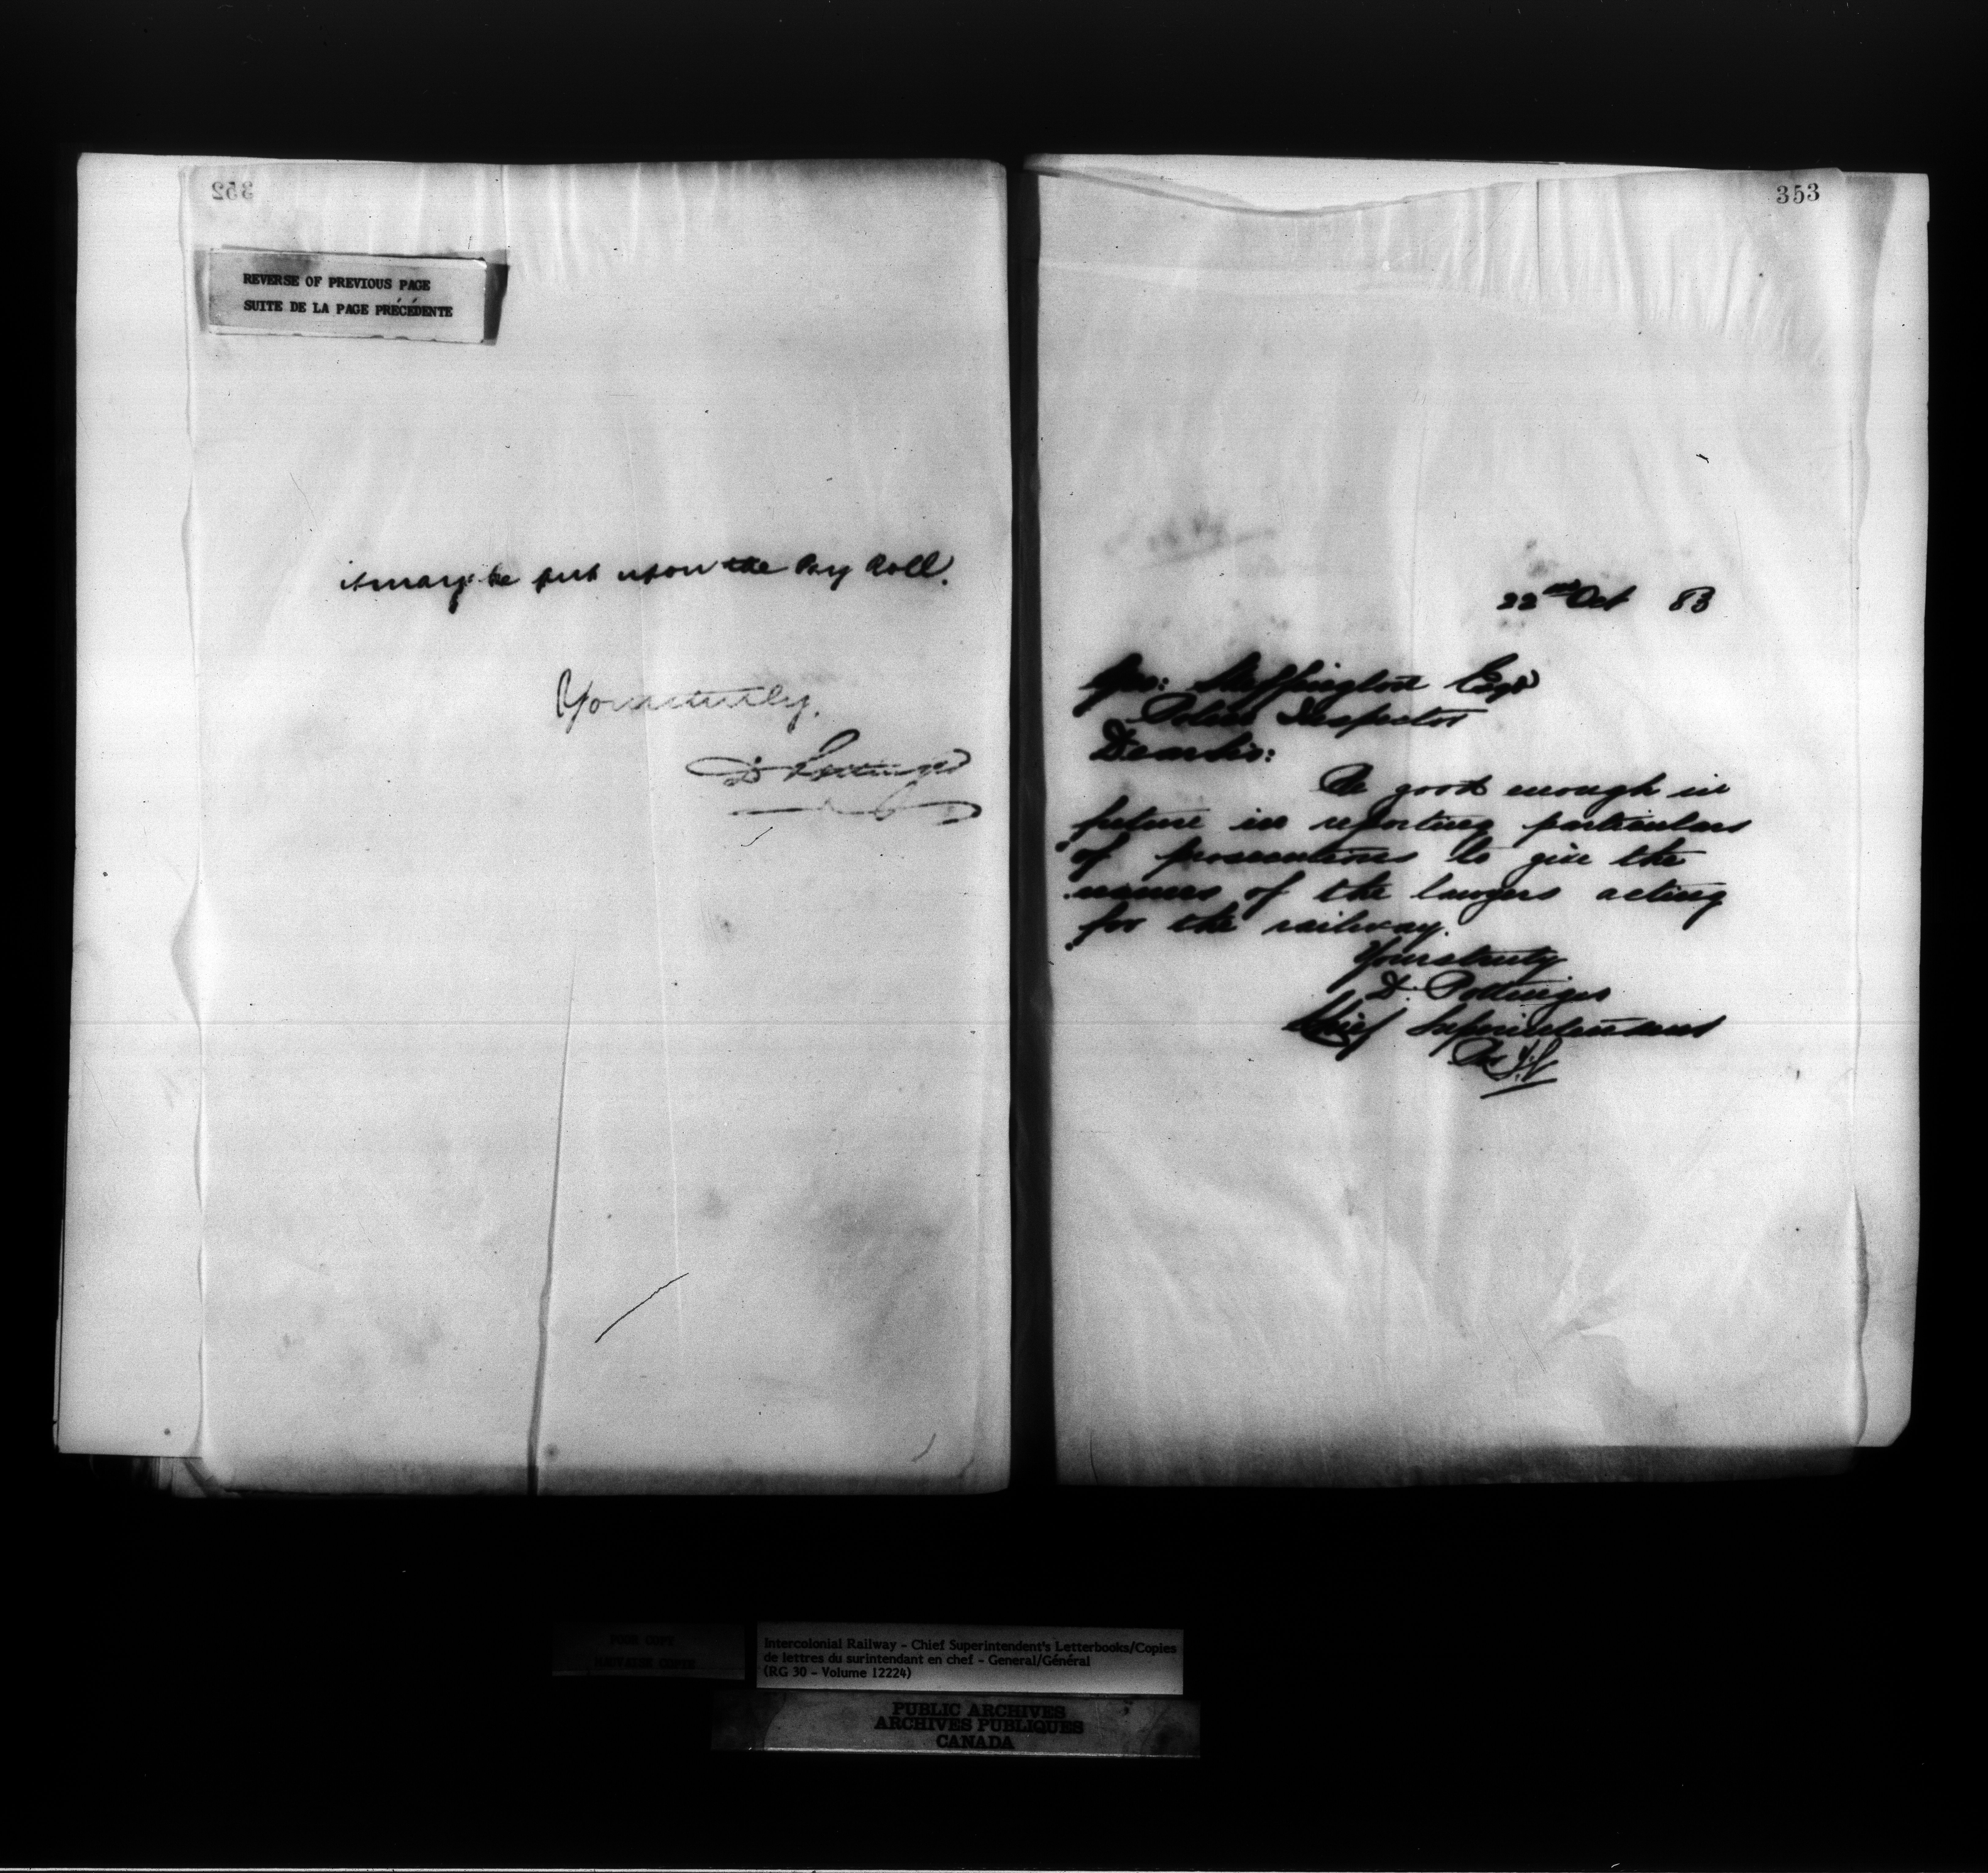 352
REVERSE OF PREVIOUS PAGE
SUITE DE LA PAGE PRÉCÉDENTE
it may be put upon the Pay Roll.
Yours truly,
D Pottinger
353
22nd Oct 83
Geo: Skeffington Esqr
Police Inspector
Dear Sir:
Be good enough in
future in reporting particulars
of prosecutions to give the
names of the lawyers acting
for the railway.
Yours truly
D. Pottinger
Chief Superintendent
Per
POOR COPY
MAUVAISE COPIE
Intercolonial Railway - Chief Superintendent's Letterbooks/Copies
de lettres du surintendant en chef - General/Général
(RG 30 - Volume 12224)
PUBLIC ARCHIVES
ARCHIVES PUBLIQUES
CANADA